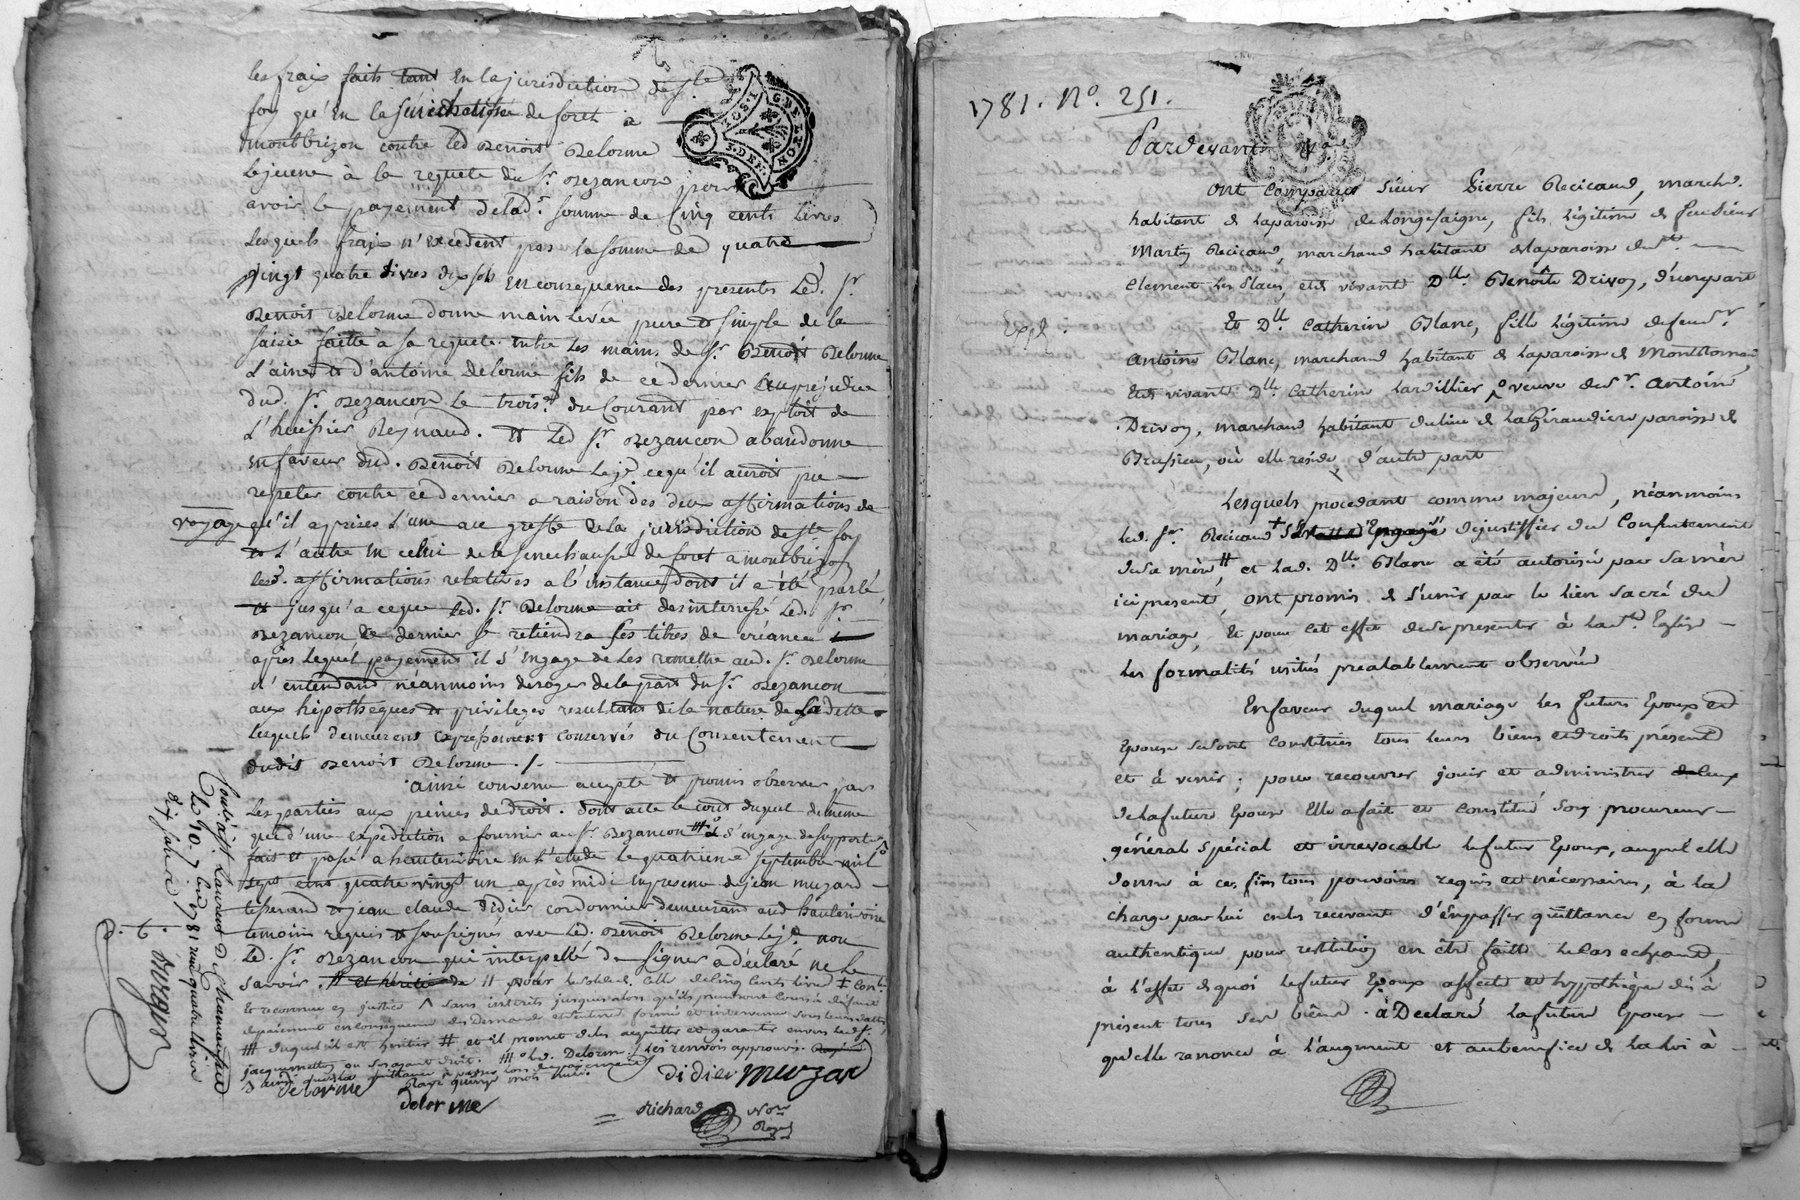 les fraix faits tant en la jurisdiction de Ste
foy qu'en la sénéchaussée de forest a
montbrizon contre led Benoit Delorme
Lejeune à la requete du Sr. Bezançon pour
avoir le payement de lad. somme de Cinq cents livres
Lesquels fraix n'excedent pas la somme de quatre
vingt quatre livres dix sols En consequence des presentes Led. Sr.
Benoit Delorme donne main levée pure et simple de la
saisie faitte à sa requete entre Les mains de Sr. Benoit Delorme
L'ainé et d'antoine delorme fils de ce dernier au prejudice
dud. Sr. Bezançon Le trois. du Courant par exploit de
L'huissier Reynaud. et Led Sr. Bezançon abandonne
en faveur dud. Benoit Delorme Leje. ce qu'il auroit pu
repeter contre ce dernier a raison des deux affirmations de
voyage qu'il a prises L'une au greffe de la jurisdiction de Ste foy
et L'autre en celui de la senechaussée de forest a montbrizon
lesd. affirmations relatives a l'instance dont il a été parlé,
et jusqu'a ce que led. Sr. Delorme ait desinteressé Led. Sr.
Bezançon ce dernier se retiendra ses titres de créance
après Lequel payement il s'engage de Les remettre aud. Sr. Delorme
n'entendant néanmoins deroger de la part du Sr. Bezançon
aux hipotheques et privileges resultant de la nature de sa dette
lesquels demeurent expressement conservés du Consentement
dudit Benoit Delorme ./.
ainsi convenu accepté et promis observer par
Les parties aux peines de droit. dont acte le cout duquel de meme
que d'une expedition a fournir au Sr. Bezançon s'engage de supporter
fait et passé a hauterivoire en l'etude Le quatrieme septembre mil
sept cent quatre vingt un après midi en presence de jean muzard
tisserand et jean claude Didier cordonnier demeurant aud hauterivoire
temoins requis et soussignés avec Led. Benoit Delorme Leje. non
Led. Sr. Bezançon qui interpellé de signer a déclaré ne le
savoir. # et héritier de # pour
et reconnue en justice ^ sans interets jusqu'alors qu'ils pourront
# duquel il est heritier # et il promet de les acquitter et garantir envers led Sr.
Les renvois approuvés.
delorme
delorme
didier muzar
Richard Nore
Royal
1781. No. 251.
Pardevant
ont Comparu Sieur Pierre Recicaud, march.
habitant de la paroisse de Longessaigne, fils Légitime de feu Sieur
Martin Recicaud, marchand habitant de la paroisse de St.
Clement Les Places, et de vivante Dlle. Benoîte Drivon, d'une part
Expd.
Et Dlle. Catherine Blanc, fille Légitime de feu Sr.
Antoine Blanc, marchand habitant de la paroisse de Montromand
et de vivante Dlle. Catherine Lardillier veuve de Sr. Antoine
Drivon, marchand habitant du lieu de La Giraudiere paroisse de
Brussieu, où elle reside, d'autre part
Lesquels procedant comme majeurs, néanmoins
led. Sr. Recicaud de justiffier du Consentement
de sa mère, et lad. Dlle. Blanc a été autorisée par sa mère
ici presente, ont promis de s'unir par le lien sacré du
mariage, Et pour cet effet de se presenter à la Ste. Eglise
Les formalités usitées préalablement observées
En faveur duquel mariage Les futurs Epoux et
Epouse se sont Constitués tous leurs biens et droits présent
et à venir ; pour recouvrer jouir et administrer de ceux
de la future Epouse Elle a fait et constitué Son procureur
général spécial et irrévocable le futur Epoux, auquel elle
donne à ces fins tous pouvoirs requis et nécessaires, à la
charge par Lui en les recevant d'en passer quittance en forme
authentique pour restitution en être faitte le cas echéant,
à l'effet de quoi le futur Epoux affecte et hypothèque dès à
présent tous ses biens. à Declaré la future Epouse
qu'elle renonce à l'augment et au benefice de la loi à